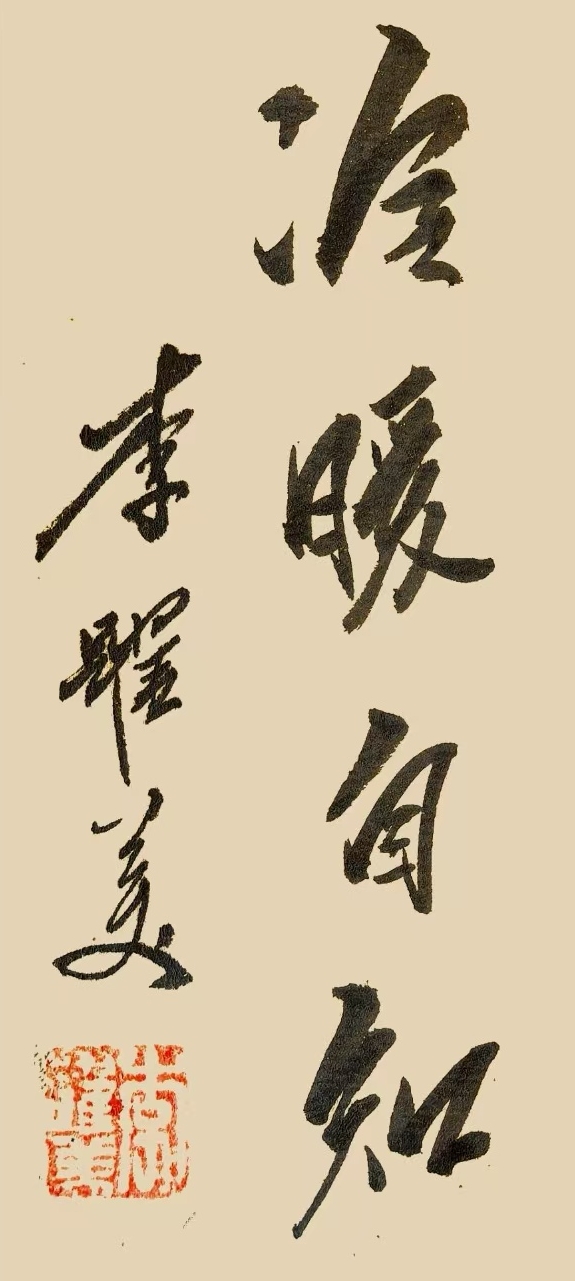 冷暖自知
李 美